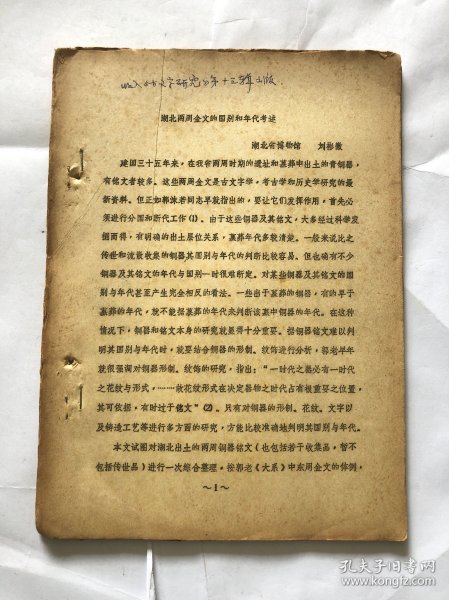 收入《古文字研究》第十三辑出版
湖北两周金文的国别和年代考述
湖北省博物馆 刘彬徽
建国三十五年来，在我省两周时期的遗址和墓葬中出土的青铜器，
有铭文者较多。这些两周金文是古文字学，考古学和历史学研究的最
新资料。但正如郭沫若同志早就指出的，要让它们发挥作用，首先必
须进行分国和断代工作(1)。由于这些铜器及其铭文，大多经过科学发
掘而得，有明确的出土层位关系，墓葬年代多较清楚。一般来说比之
传世和流散收集的铜器其国别与年代的判断比较容易。但也确有不少
铜器及其铭文的年代与国别一时很难断定。对某些铜器及其铭文的国
别与年代甚至产生完全相反的看法。一些出于墓葬的铜器，有的早于
墓葬的年代，就不能据墓葬的年代来判断该墓中铜器的年代。在这种
情况下，铜器和铭文本身的研究就显得十分重要。据铜器铭文难以判
明其国别与年代时，就要结合铜器的形制。纹饰进行分析，郭老早年
就很强调对铜器形制。纹饰的研究，指出：“一时代之器必有一时代
之花纹与形式，……故花纹形式在决定器物之时代占有极重要之位置，
其可依据，有时过于铭文”(2)。只有对铜器的形制。花纹。文字以
及铸造工艺等进行多方面的研究，方能比较准确地判明其国别与年代。
本文试图对湖北出土的两周铜器铭文（也包括若干收集品，暂不
包括传世品）进行一次综合整理，按郭老《大系》中东周金文的体例，
～1～
孔夫子旧书网
www.kongfz.com